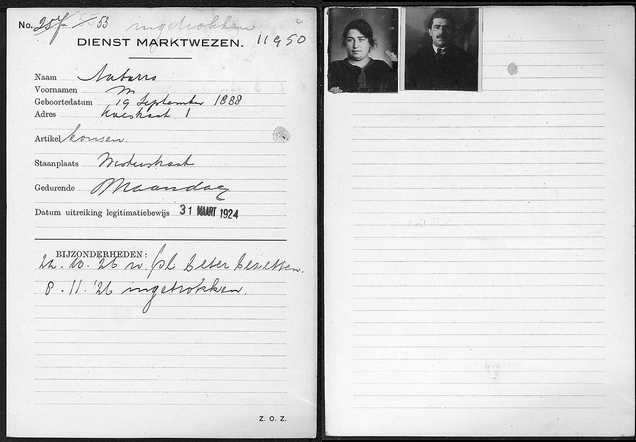 No. 257 53 ingetrokken
DIENST MARKTWEZEN. 11950
Naam Nabarro
Voornamen M
Geboortedatum 19 September 1888
Adres 1
Artikel kousen.
Staanplaats Westerstraat
Gedurende Maandag
Datum uitreiking legitimatiebewijs 31 MAART 1924
BIJZONDERHEDEN:
22.10.26 pl beter bezetten.
8.11.'26 ingetrokken.
Z. O. Z.